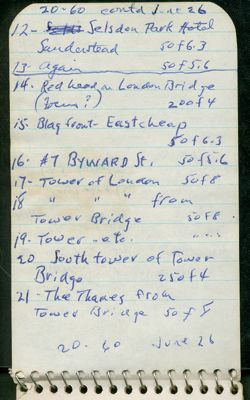 20-60 contd June 26
12- Selsdon Park Hotel
Sanderstead 50 f 6.3
13- again 50 f 5.6
14- Red head on London Bridge
200 f 4
15- Blag front- Eastcheap
50 f 6.3
16- #7 BYWARD St. 50 f 5.6
17- Tower of London 50 f 8
18 " " " from
Tower Bridge 50 f 8.
19. Tower - etc. " " "
20 South tower of Tower
Bridge 250 f 4
21- The Thames from
Tower Bridge 50 f 8
20-60 June 26